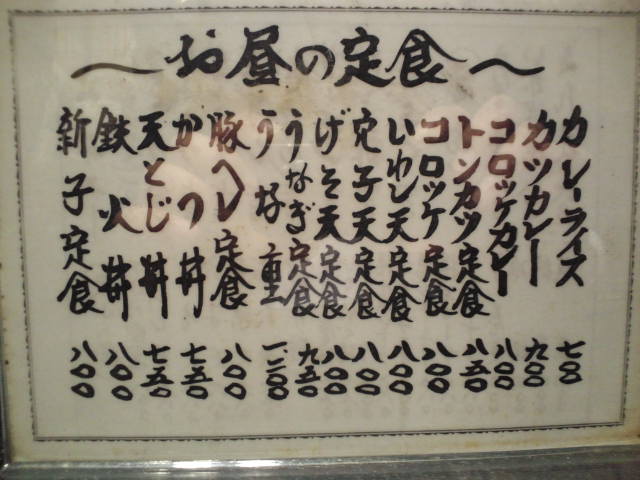 ～お昼の定食～
カレーライス 七〇〇
カツカレー 九〇〇
コロッケカレー 八〇〇
トンカツ定食 八五〇
コロッケ定食 八〇〇
いわし天定食 八〇〇
穴子天定食 八〇〇
げそ天定食 八〇〇
うなぎ定食 九五〇
うな重 一二〇〇
豚ヘレ定食 八〇〇
かつ丼 七五〇
天とじ丼 七五〇
鉄火丼 八〇〇
新子定食 八〇〇